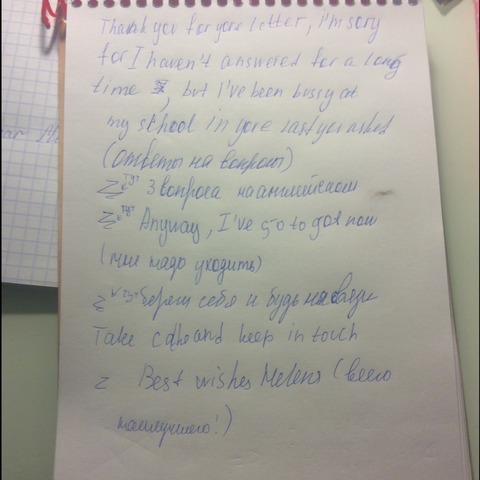 Thank you for your letter, i'm sory
for I haven't answered for a long
time , but I've been bussy at
my school in yore last you asked
(ответы на вопросы)
Z тут 3 вопроса на английском
Z тут Anyway, I've go to got now
(мне надо уходить)
z тут береги себя и будь на связи
Take care and keep in touch
z Best wishes Melens (всего
наилучшего!)